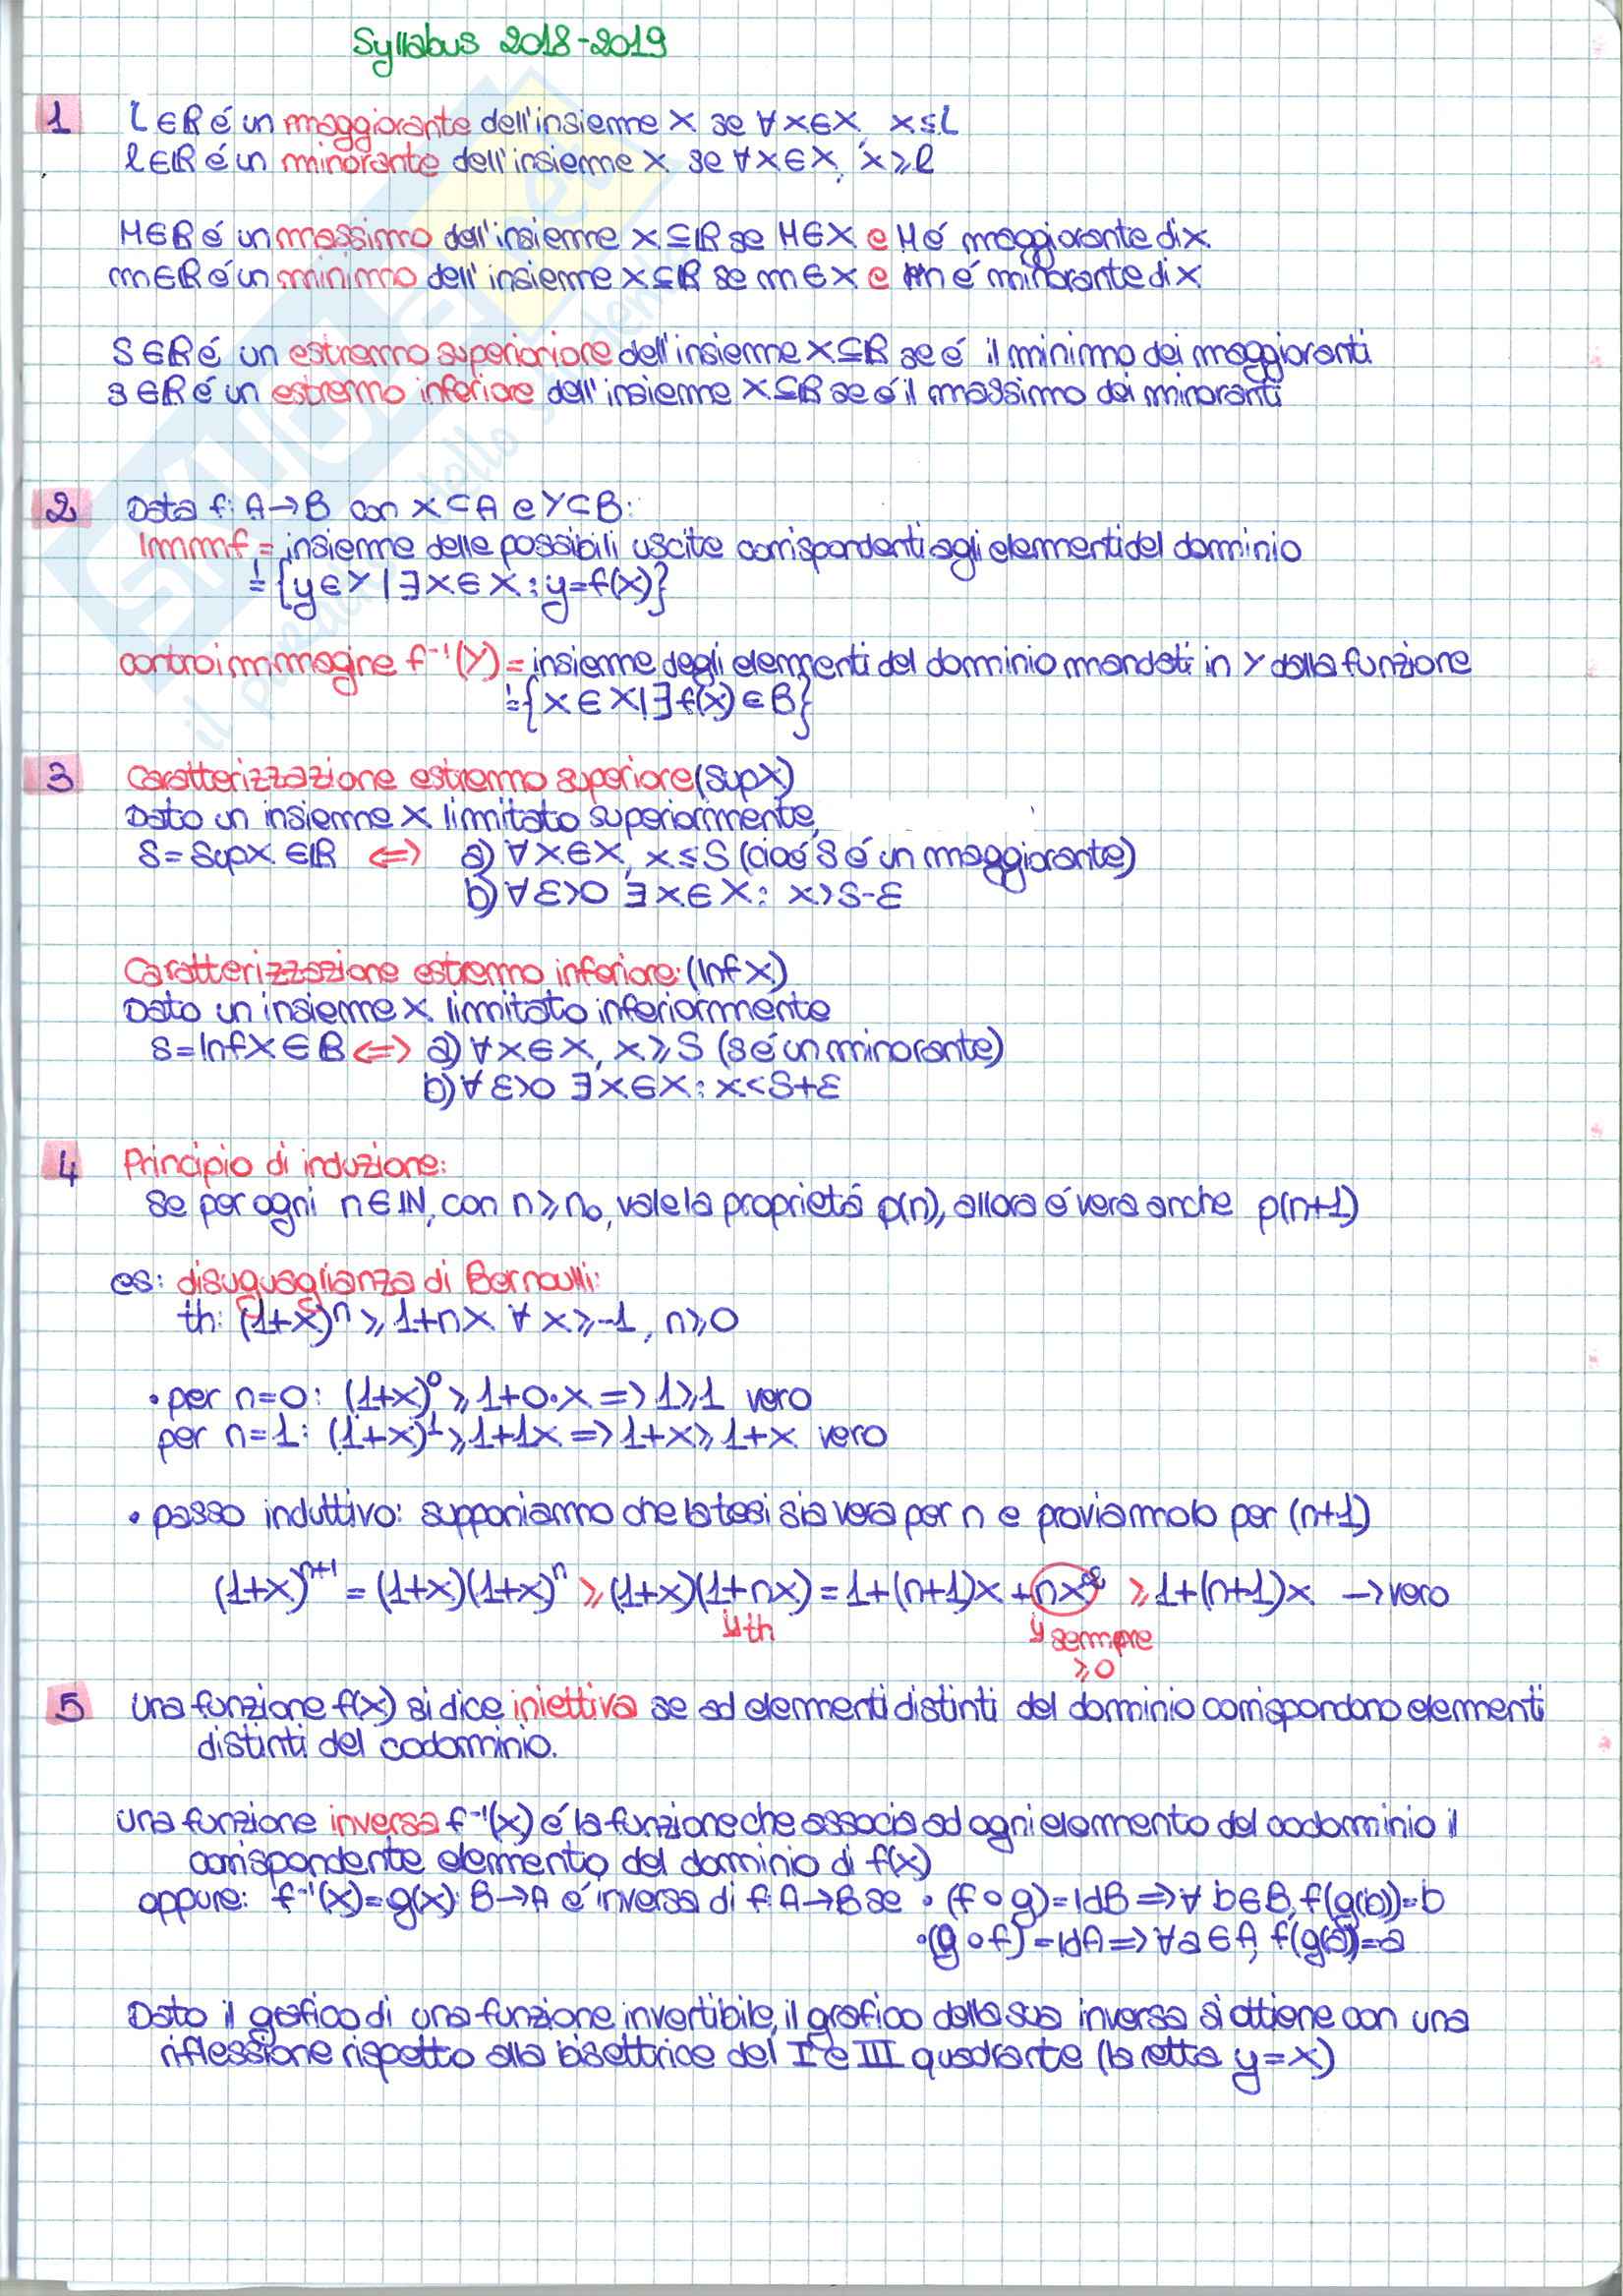 Syllabus 2018-2019
1 L∈ℝ é un maggiorante dell'insieme X se ∀x∈X, x≤L
l∈ℝ é un minorante dell'insieme X se ∀x∈X, x≥l
M∈ℝ é un massimo dell'insieme X⊆ℝ se M∈X e M é maggiorante di X
m∈ℝ é un minimo dell'insieme X⊆ℝ se m∈X e m é minorante di X
S∈ℝ é un estremo superioriore dell'insieme X⊆ℝ se é il minimo dei maggioranti
s∈ℝ é un estremo inferiore dell'insieme X⊆ℝ se é il massimo dei minoranti
2 Data f: A→B con X⊂A e Y⊂B:
Immf = insieme delle possibili uscite corrispondenti agli elementi del dominio
= {y∈Y | ∃x∈X : y=f(x)}
controimmagine f⁻¹(Y) = insieme degli elementi del dominio mandati in Y dalla funzione
= {x∈X | ∃ f(x)∈B}
3 Caratterizzazione estremo superiore (SupX)
Dato un insieme X limitato superiormente,
S=SupX∈ℝ <=> a) ∀x∈X, x≤S (cioé S é un maggiorante)
b) ∀ε>0 ∃x∈X: x>S-ε
Caratterizzazione estremo inferiore: (Inf X)
Dato un insieme X limitato inferiormente
S=InfX∈ℝ <=> a) ∀x∈X, x≥S (s é un minorante)
b) ∀ε>0 ∃x∈X: x<S+ε
4 Principio di induzione:
Se per ogni n∈ℕ, con n≥n₀, vale la proprietá p(n), allora é vera anche p(n+1)
es: disuguaglianza di Bernoulli:
th: (1+x)ⁿ ≥ 1+nx ∀ x≥-1, n≥0
• per n=0: (1+x)⁰ ≥ 1+0·x => 1≥1 vero
per n=1: (1+x)¹ ≥ 1+1x => 1+x ≥ 1+x vero
• passo induttivo: supponiamo che la tesi sia vera per n e proviamolo per (n+1)
(1+x)ⁿ⁺¹ = (1+x)(1+x)ⁿ ≥ (1+x)(1+nx) = 1+(n+1)x + nx² ≥ 1+(n+1)x → vero
↳ th ↳ sempre
≥0
5 Una funzione f(x) si dice iniettiva se ad elementi distinti del dominio corrispondono elementi
distinti del codominio.
Una funzione inversa f⁻¹(x) é la funzione che associa ad ogni elemento del codominio il
corrispondente elemento del dominio di f(x)
oppure: f⁻¹(x)=g(x): B→A é inversa di f: A→B se • (f∘g)=IdB => ∀ b∈B, f(g(b))=b
• (g∘f)=IdA => ∀a∈A, f(g(a))=a
Dato il grafico di una funzione invertibile, il grafico della sua inversa si ottiene con una
riflessione rispetto alla bisettrice del I e III quadrante (la retta y=x)